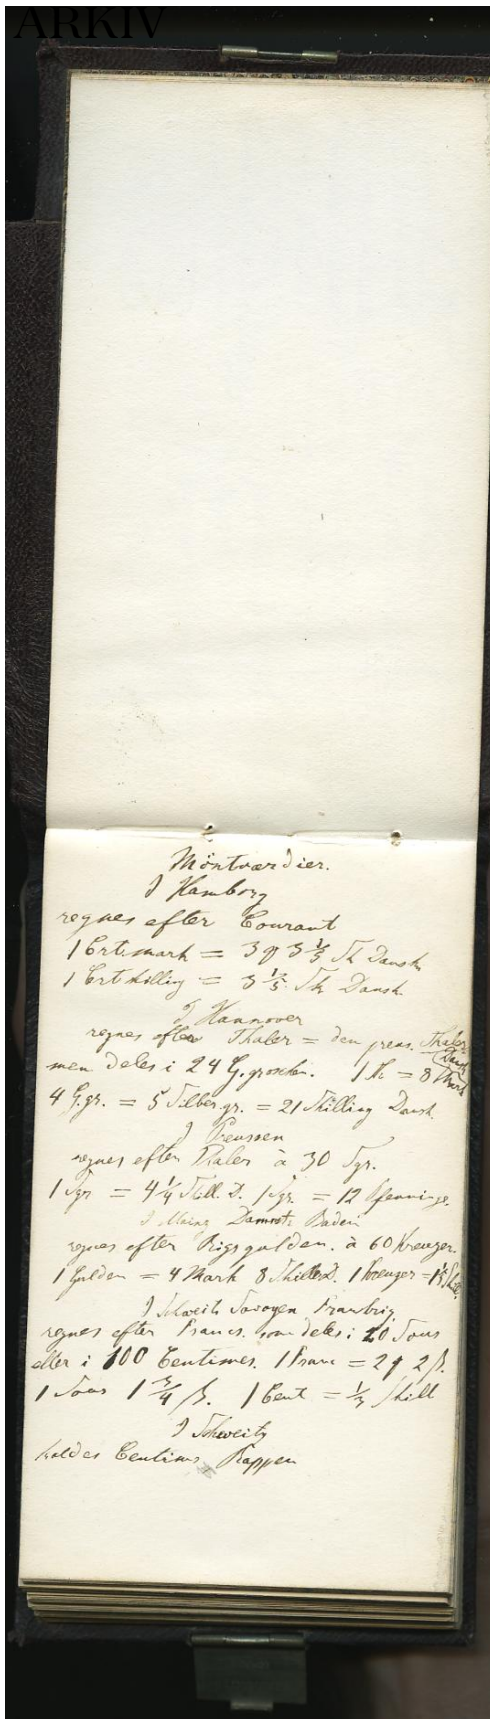 ARKIV
Möntværdier.
I Hamborg
regnes efter Courant
1 Crt.mark = 3 ɱ 3 1/5 Sk Dansk
1 Crtskilling = 3 1/5 Sk Dansk.
I Hannover
regnes efter Thaler = den preus. Thaler
men deles i 24 G.groschen. 1 Th = 8 Mark Dansk
4 G.gr. = 5 Silbergr. = 21 Skilling Dansk.
I Preussen
regnes efter Thaler à 30 Sgr.
1 Sgr = 4 1/4 Skill. D. 1 Sgr. = 12 Pfenninge.
I Mainz Darmst. Baden
regnes efter Rigsgulden. à 60 Kreuzer.
1 Gulden = 4 Mark 8 Skill D. 1 Kreuzer = Skill.
I Schweitz Savoyen Frankrig
regnes efter Francs. som deles i 20 Sous
eller i 100 Centimes. 1 Franc = 2 ɱ 2 ß.
1 Sous 1 3/4 ß. 1 Cent = 1/3 Skill
I Schweitz
kaldes Centims Rappen